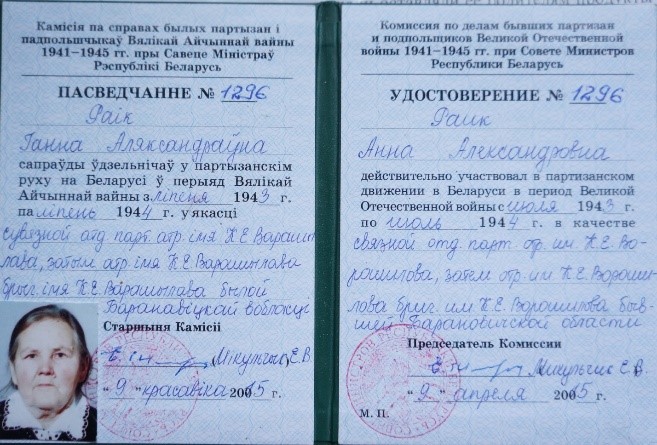 Камісія па справах былых партызан і
падпольшчыкаў Вялікай Айчыннай вайны
1941—1945 гг. пры Савеце Міністраў
Рэспублікі Беларусь
ПАСВЕДЧАННЕ № 1296
Раік
Ганна Аляксандраўна
сапраўды ўдзельнічаў у партызанскім
руху на Беларусі ў перыяд Вялікай
Айчыннай вайны з ліпеня 1943 г.
па ліпень 1944 г. у якасці
сувязной отд парт. атр. імя К.Е. Варашы
лава, затым атр. імя К.Е. Варашылава
брыг. імя К.Е. Варашылава былой
Баранавіцкай вобласці
Старшыня Камісіі
Мікульчык Е.В.
"9" красавіка 2005 г.
Комиссия по делам бывших партизан
и подпольщиков Великой Отечественной
войны 1941—1945 гг. при Совете Министров
Республики Беларусь
УДОСТОВЕРЕНИЕ № 1296
Раик
Анна Александровна
действительно участвовал в партизанском
движении в Беларуси в период Великой
Отечественной войны с июля 1943 г.
по июль 1944 г. в качестве
связной отд парт. отр. им. К.Е. Во-
рошилова, затем отр. им К.Е. Вороши-
лова бриг. им К.Е. Ворошилова быв-
шей Барановичской области
Председатель Комиссии
Микульчик Е.В.
"9" апреля 2005 г.
М. П.